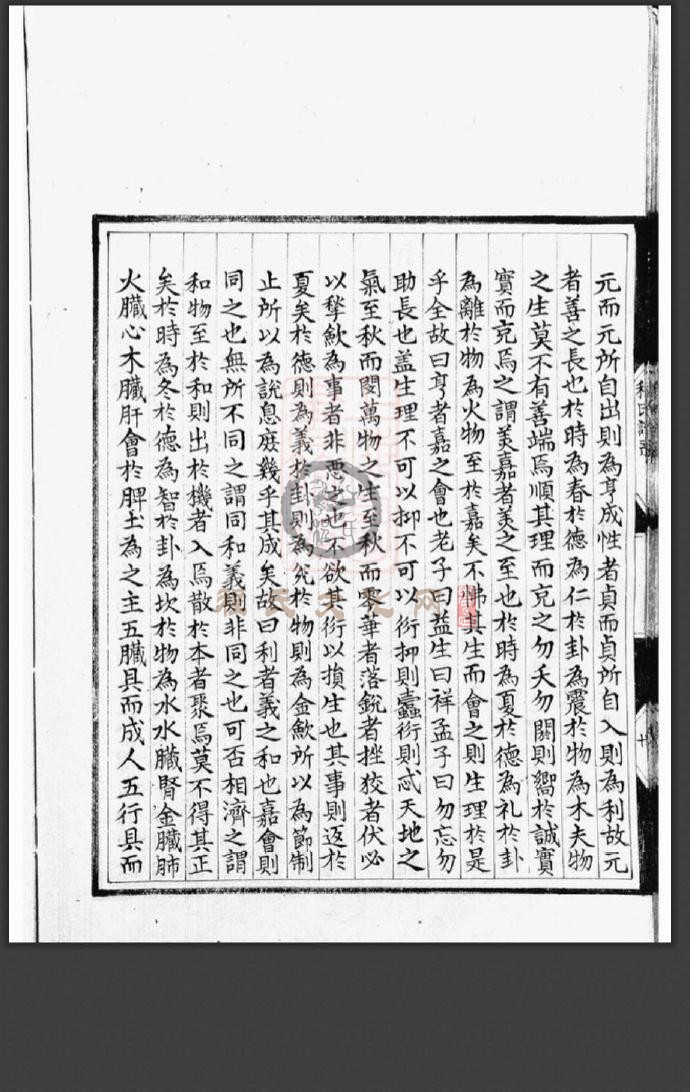 元而元所自出則為亨成性者貞而貞所自入則為利故元
者善之長也於時為春於德為仁於卦為震於物為木夫物
之生莫不有善端焉順其理而克之勿夭勿閼則嚮於誠實
實而克焉之謂美嘉者美之至也於時為夏於德為礼於卦
為離於物為火物至於嘉矣不怫其生而會之則生理於是
乎全故曰亨者嘉之會也老子曰益生曰祥孟子曰勿忘勿
助長也盖生理不可以抑不可以衍抑則蠹衍則忒天地之
氣至秋而閔萬物之生至秋而零華者落銳者挫狡者伏必
以揫歛為事者非悪之也不欲其衍以損生也其事則返於
夏矣於德則為義於卦則為兊於物則為金歛所以為節制
止所以為說息庻幾乎其成矣故曰利者義之和也嘉會則
同之也無所不同之謂同和義則非同之也可否相濟之謂
和物至於和則出於機者入焉散於本者聚焉莫不得其正
矣於時為冬於德為智於卦為坎於物為水水臟腎金臟肺
火臟心木臟肝會於脾土為之主五臟具而成人五行具而